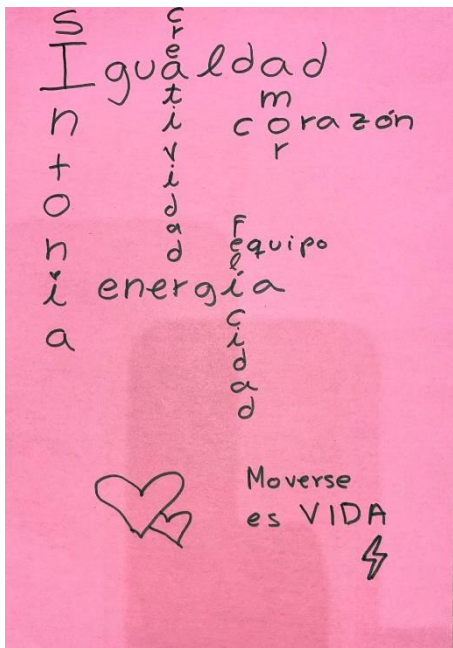 SIntonia
creatividad
Igualdad
amor
corazón
Felícidad
equipo
energía
Moverse
es VIDA